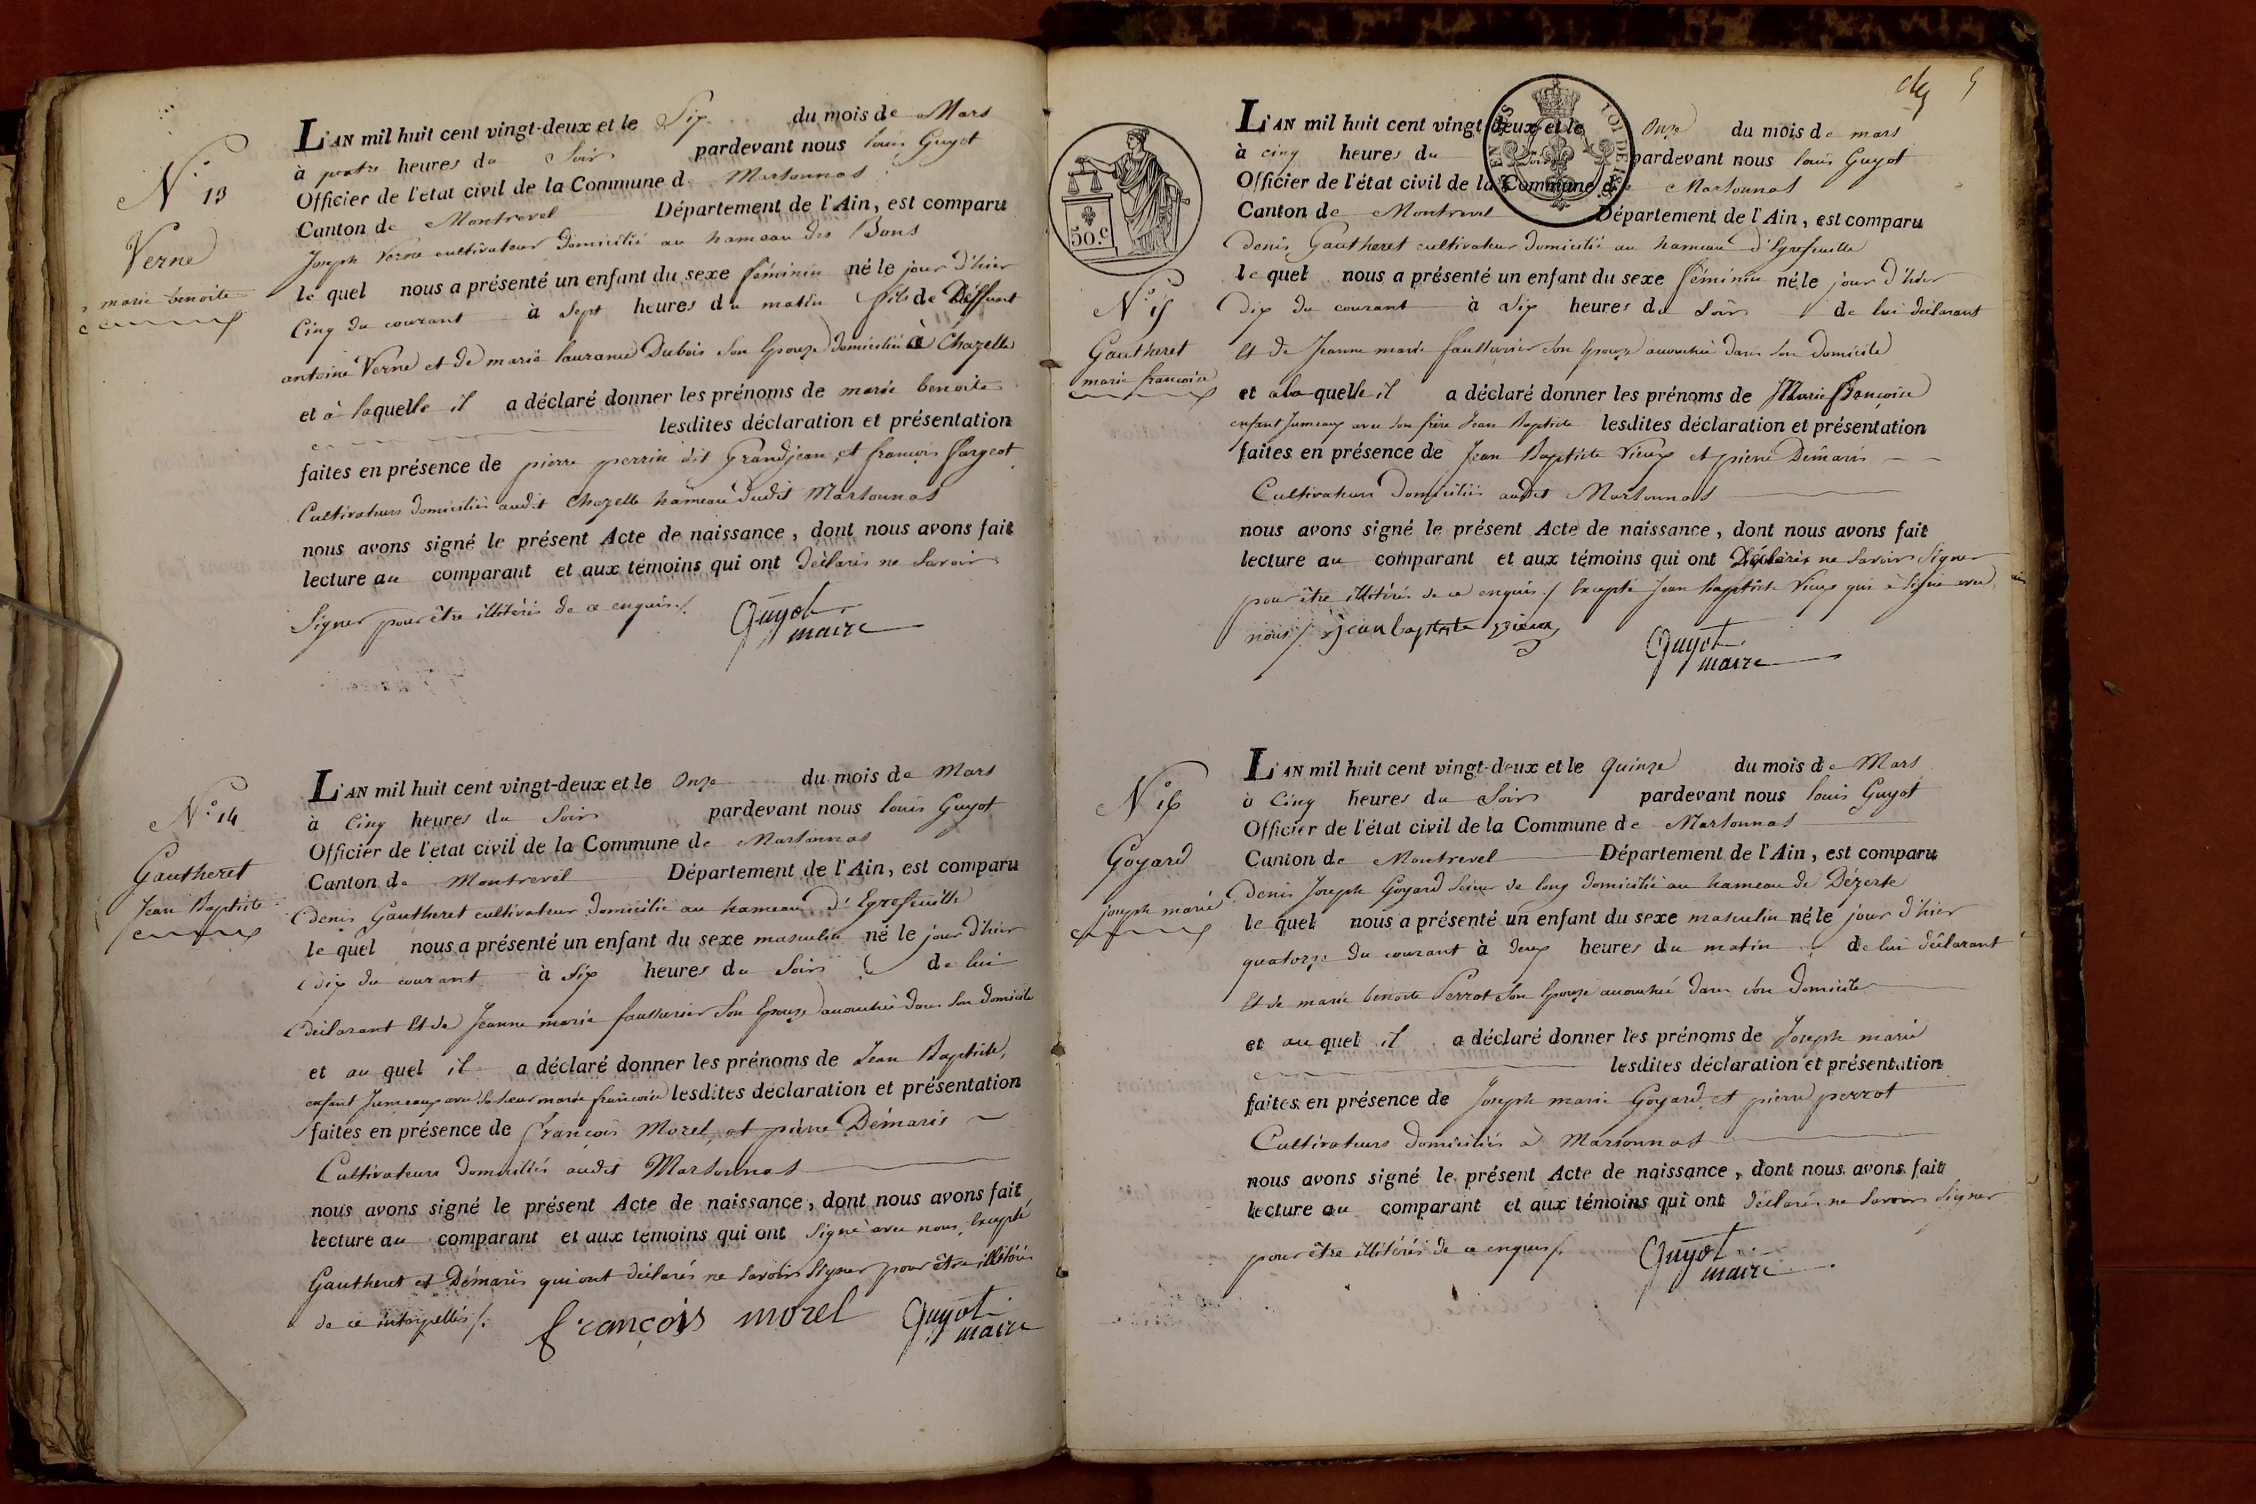 N.° 13
Verne
marie benoite
L'AN mil huit cent vingt-deux et le Six du mois de Mars
à quatre heures du Soir pardevant nous louis Guyot
Officier de l'état civil de la Commune de Marsonnas
Canton de Montrevel Département de l'Ain, est comparu
Joseph Verne cultivateur domicilié au hameau des Bons
le quel nous a présenté un enfant du sexe féminin né le jour d'hier
Cinq du courant à Sept heures du matin fils de Deffunt
antoine Verne et de marie laurance Dubois son Epouze domicilié à Chazelle
et à laquelle il a déclaré donner les prénoms de marie benoite
lesdites déclaration et présentation
faites en présence de pierre perrin dit Grandjean et françois fargeot
Cultivateurs domiciliés audit Chazelle hameau dudit Marsonnas
nous avons signé le présent Acte de naissance, dont nous avons fait
lecture au comparant et aux témoins qui ont déclarés ne savoir
Signer pour être illitérés de ce enquis ./.
Guyot
maire
N.° 14
Gautheret
Jean Baptiste
L'AN mil huit cent vingt-deux et le Onze du mois de Mars
à Cinq heures du Soir pardevant nous louis Guyot
Officier de l'état civil de la Commune de Marsonnas
Canton de Montrevel Département de l'Ain, est comparu
denis Gautheret cultivateur domicilié au hameau d'Egrefeuille
le quel nous a présenté un enfant du sexe masculin né le jour d'hier
dix du courant à Six heures du Soir de lui
déclarant Et de Jeanne marie faussurier Son Epouze accouchée dans Son domicile
et au quel il a déclaré donner les prénoms de Jean Baptiste,
enfant Jumeaux avec Sa Sœur marie françoise lesdites déclaration et présentation
faites en présence de françois Morel et pierre Démaris
Cultivateurs domiciliés audit Marsonnas
nous avons signé le présent Acte de naissance, dont nous avons fait
lecture au comparant et aux témoins qui ont Signé avec nous, Excepté
Gautheret et Démaris qui ont déclarés ne Savoir Signer pour être illitérés
de ce interpellés ./.
françois morel
Guyot
maire
5
50.c
N.° 15
Gautheret
marie francoise
L'AN mil huit cent vingt-deux et le Onze du mois de mars
à cinq heures du Soir pardevant nous louis Guyot
Officier de l'état civil de la Commune de Marsonnas
Canton de Montrevel Département de l'Ain, est comparu
denis Gautheret cultivateur domicilié au hameau d'Egrefeuille
le quel nous a présenté un enfant du sexe féminin né le jour d'hier
Dix du courant à Six heures du Soir de lui déclarant
Et de Jeanne marie faussurier Son Epouze accouchée dans Son domicile
et a la quelle il a déclaré donner les prénoms de Marie Françoise
enfant Jumeaux avec Son frère Jean Baptiste lesdites déclaration et présentation
faites en présence de Jean Baptiste Vieux et pierre Démaris
Cultivateurs domiciliés audit Marsonnas
nous avons signé le présent Acte de naissance, dont nous avons fait
lecture au comparant et aux témoins qui ont Déclarés ne Savoir Signer
pour être illitérés de ce enquis ./ Excepté Jean baptiste Vieux qui à Signé avec
nous ./.
jean baptiste vieux
Guyot
maire
N.° 16
Goyard
joseph marie
L'AN mil huit cent vingt-deux et le Quinze du mois de Mars
à Cinq heures du Soir pardevant nous louis Guyot
Officier de l'état civil de la Commune de Marsonnas
Canton de Montrevel Département de l'Ain, est comparu
denis Joseph Goyard Scieur de long domicilié au hameau de Dézerte
le quel nous a présenté un enfant du sexe masculin né le jour d'hier
quatorze du courant à deux heures du matin de lui déclarant
Et de marie benoite Perrot Son Epouze accouchée dans Son domicile
et au quel il a déclaré donner les prénoms de Joseph marie
lesdites déclaration et présentation
faites en présence de Joseph marie Goyard et pierre perrot
Cultivateurs domiciliés à Marsonnas
nous avons signé le présent Acte de naissance, dont nous avons fait
lecture au comparant et aux témoins qui ont déclarés ne Savoir Signer
pour être illitérés de ce enquis ./.
Guyot
maire